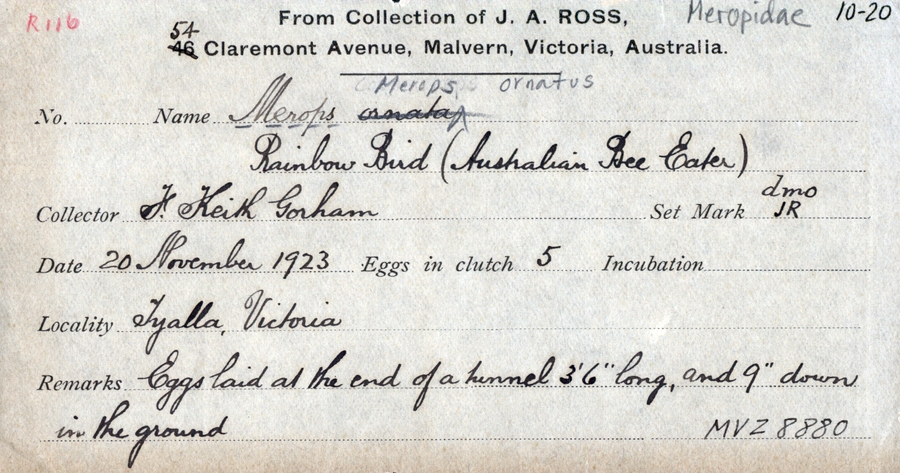 R116
Meropidae 10-20
From Collection of J. A. ROSS,
54
46 Claremont Avenue, Malvern, Victoria, Australia.
Merops ornatus
No. Name Merops ornata
Rainbow Bird (Australian Bee Eater)
Collector F. Keith Gorham Set Mark dmo
JR
Date 20 November 1923 Eggs in clutch 5 Incubation
Locality Tyalla, Victoria
Remarks Eggs laid at the end of a tunnel 3'6" long, and 9" down
in the ground MVZ 8880